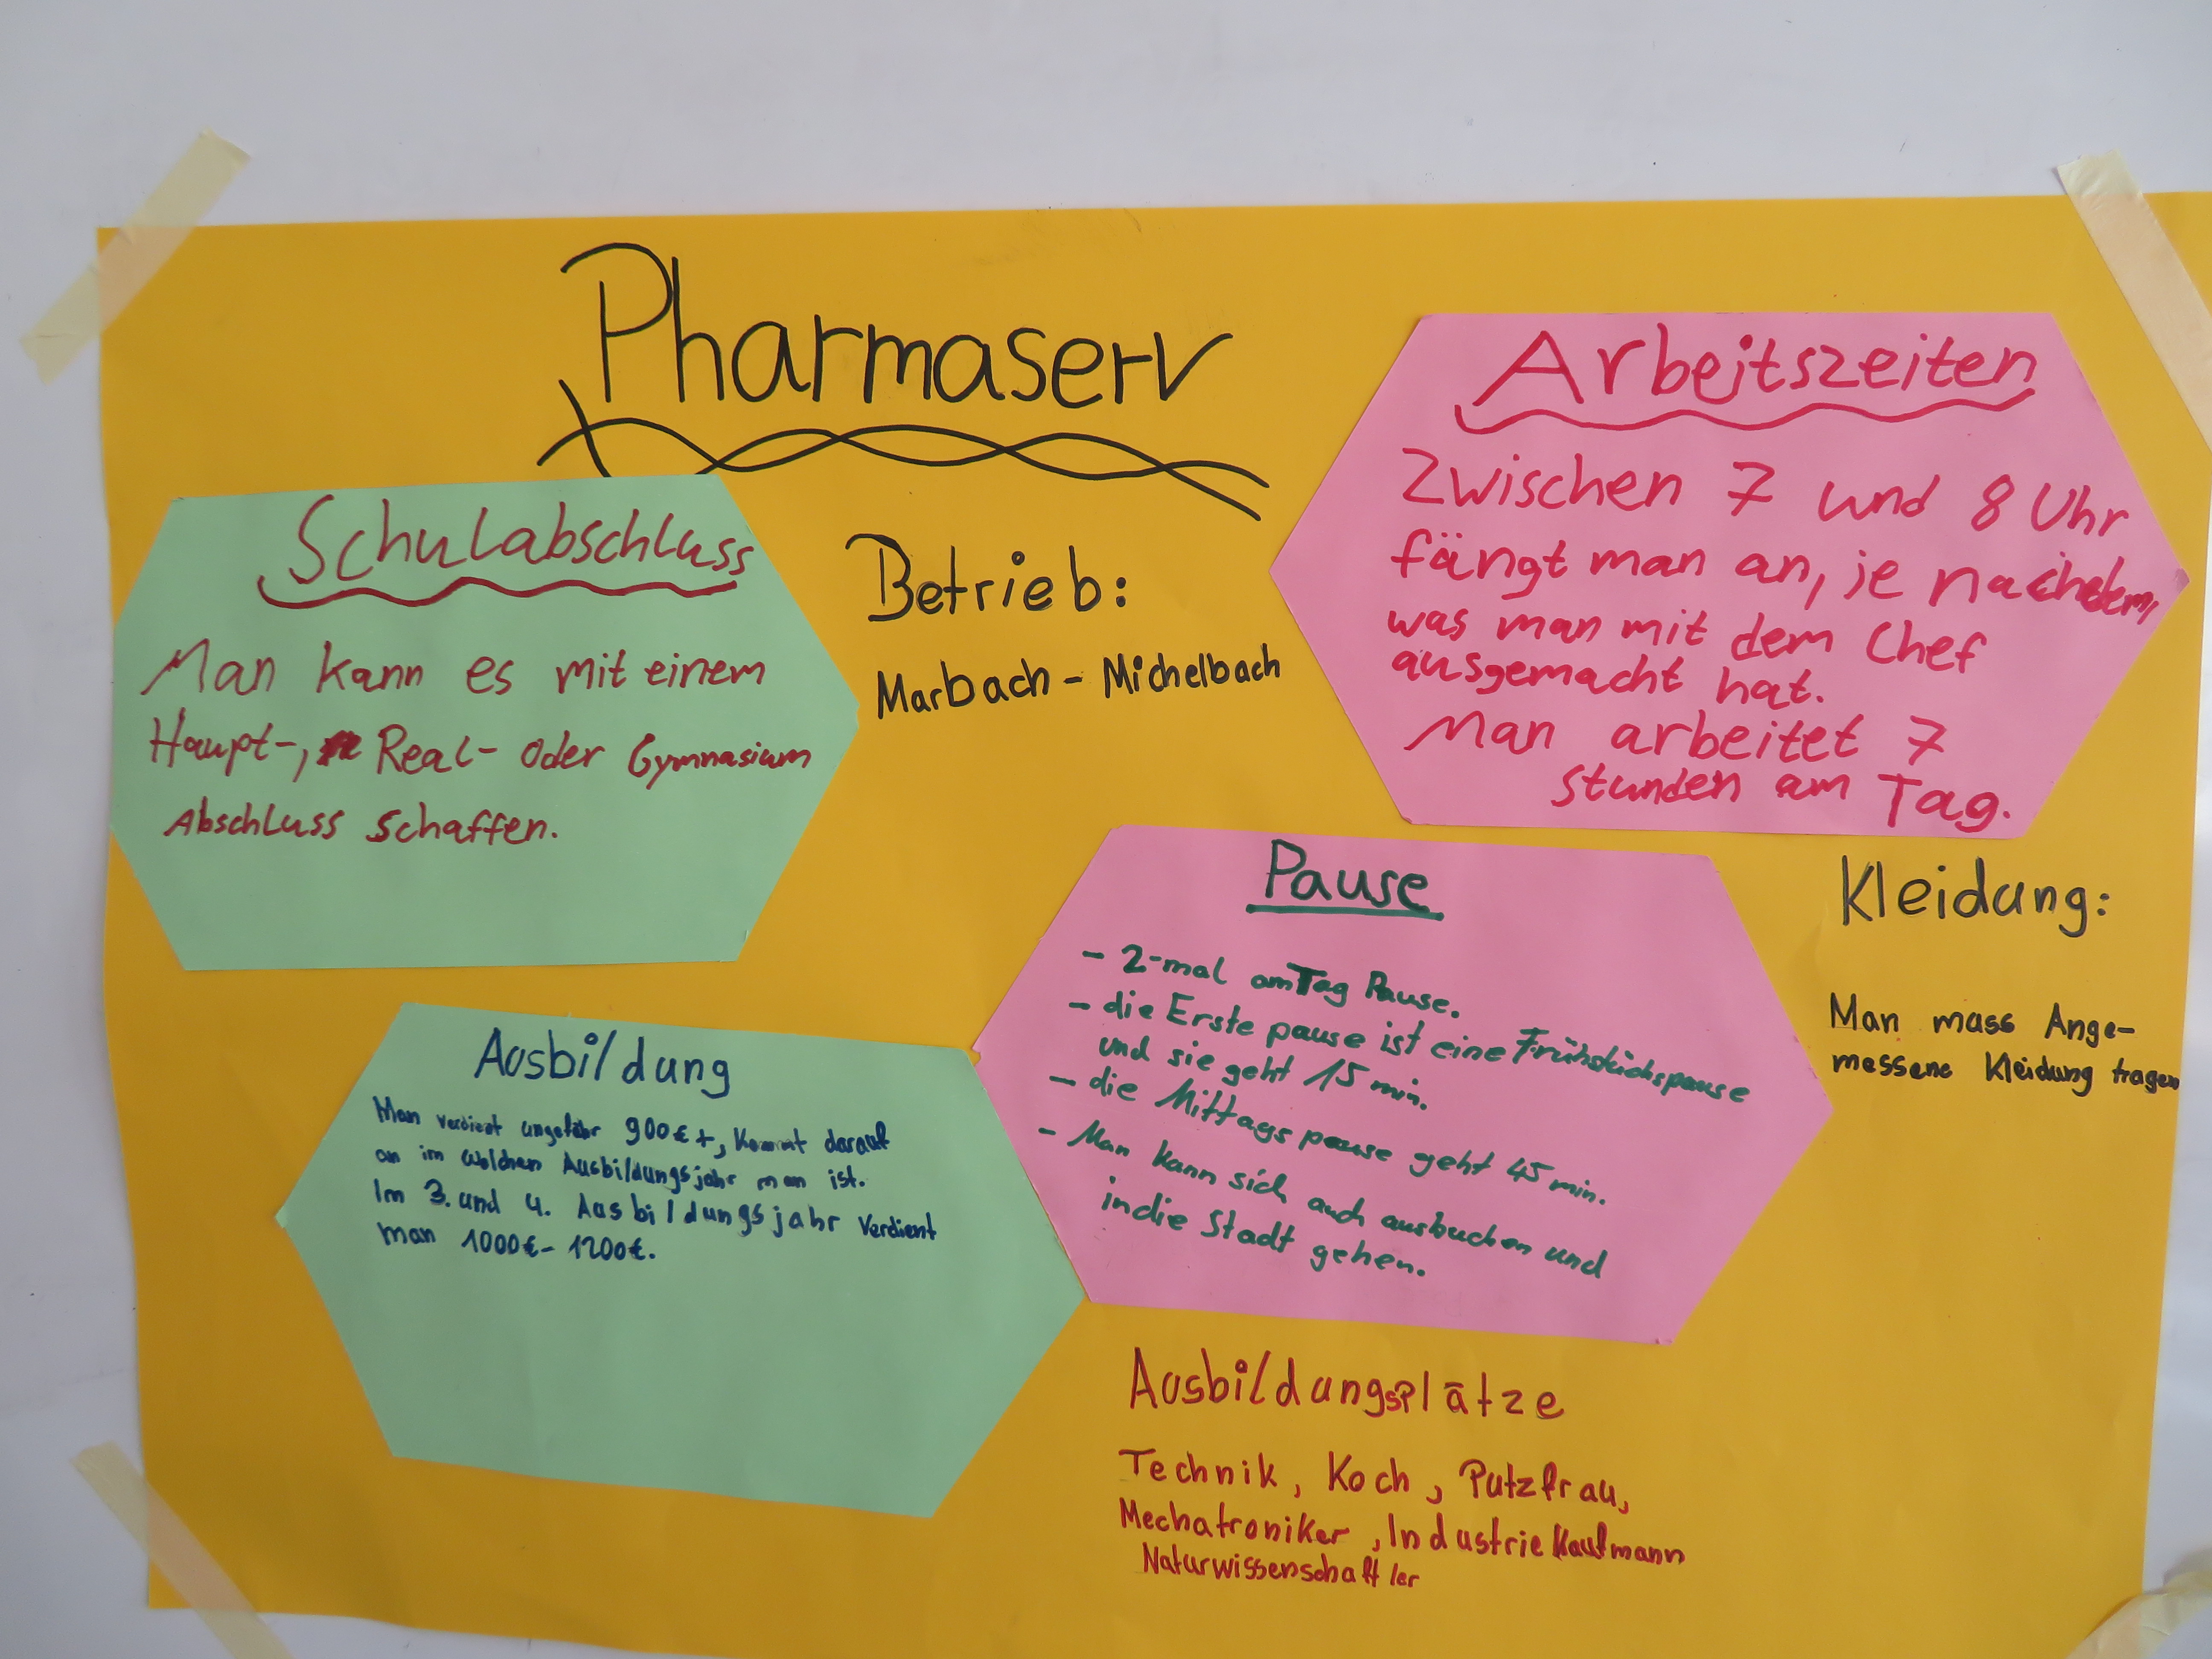 Pharmaserv
Schulabschluss
Man kann es mit einem
Haupt-, Real- oder Gymnasium
Abschluss schaffen.
Betrieb:
Marbach - Michelbach
Arbeitszeiten
Zwischen 7 und 8 Uhr
fängt man an, je nachdem,
was man mit dem Chef
ausgemacht hat.
Man arbeitet 7
stunden am Tag.
Pause
- 2-mal am Tag Pause.
- die Erste pause ist eine Frühstückspause
und sie geht 15 min.
- die Mittags pause geht 45 min.
- Man kann sich auch ausbuchen und
in die Stadt gehen.
Kleidung:
Man muss Ange-
messene Kleidung tragen
Ausbildung
Man verdient ungefähr 900€+, kommt darauf
an im welchen Ausbildungsjahr man ist.
Im 3. und 4. Ausbildungsjahr verdient
man 1000€ - 1200€.
Ausbildungsplätze
Technik, Koch, Putzfrau,
Mechatroniker, Industriekaufmann
Naturwissenschaftler